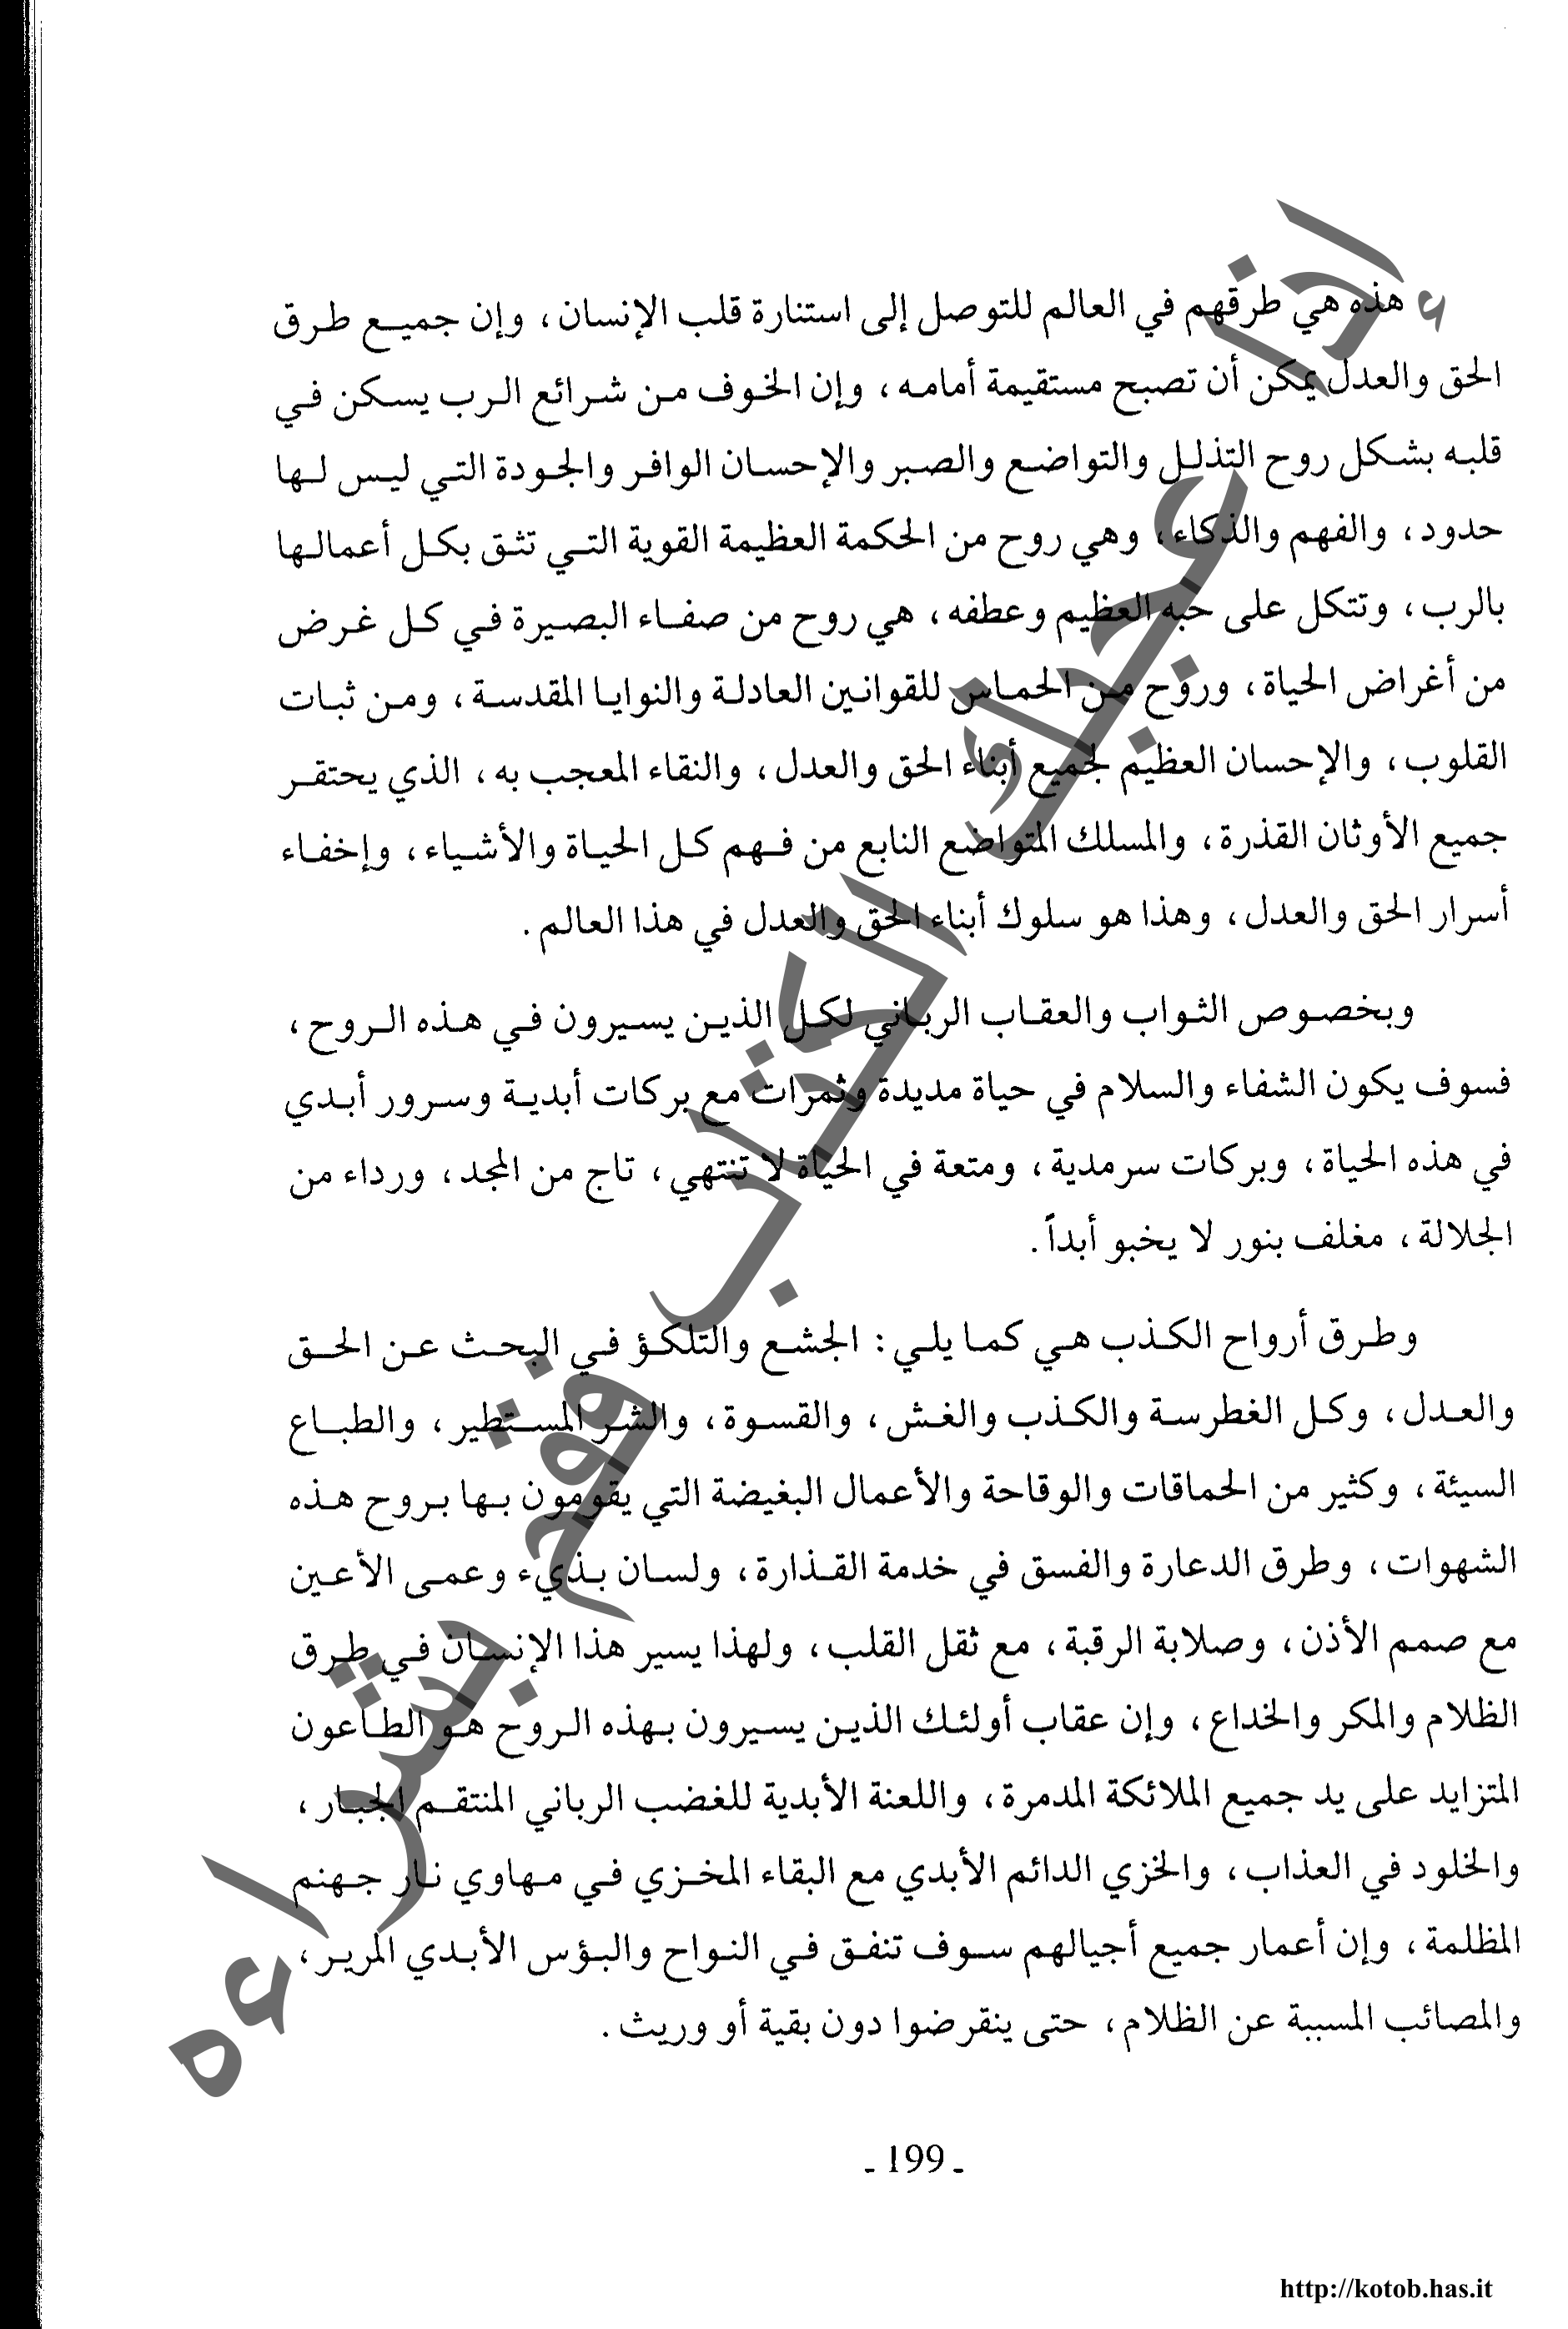 هذه هي طرقهم في العالم للتوصل إلى استنارة قلب الإنسان، وإن جميع طرق
الحق والعدل يمكن أن تصبح مستقيمة أمامه، وإن الخوف من شرائع الرب يسكن في
قلبه بشكل روح التذلل والتواضع والصبر والإحسان الوافر والجودة التي ليس لها
حدود، والفهم والذكاء، وهي روح من الحكمة العظيمة القوية التي تثق بكل أعمالها
بالرب، وتتكل على حبه العظيم وعطفه، هي روح من صفاء البصيرة في كل غرض
من أغراض الحياة، وروح من الحماس للقوانين العادلة والنوايا المقدسة، ومن ثبات
القلوب، والإحسان العظيم لجميع أبناء الحق والعدل، والنقاء المعجب به، الذي يحتقر
جميع الأوثان القذرة، والمسلك المتواضع النابع من فهم كل الحياة والأشياء، وإخفاء
أسرار الحق والعدل، وهذا هو سلوك أبناء الحق والعدل في هذا العالم.
وبخصوص الثواب والعقاب الرباني لكل الذين يسيرون في هذه الروح،
فسوف يكون الشفاء والسلام في حياة مديدة وثمرات مع بركات أبدية وسرور أبدي
في هذه الحياة، وبركات سرمدية، ومتعة في الحياة لا تنتهي، تاج من المجد، ورداء من
الجلالة، مغلف بنور لا يخبو أبداً.
وطرق أرواح الكذب هي كما يلي: الجشع والتلكؤ في البحث عن الحق
والعدل، وكل الغطرسة والكذب والغش، والقسوة، والشر المستطير، والطباع
السيئة، وكثير من الحماقات والوقاحة والأعمال البغيضة التي يقومون بها بروح هذه
الشهوات، وطرق الدعارة والفسق في خدمة القذارة، ولسان بذيء وعمى الأعين
مع صمم الأذن، وصلابة الرقبة، مع ثقل القلب، ولهذا يسير هذا الإنسان في طرق
الظلام والمكر والخداع، وإن عقاب أولئك الذين يسيرون بهذه الروح هو الطاعون
المتزايد على يد جميع الملائكة المدمرة، واللعنة الأبدية للغضب الرباني المنتقم الجبار،
والخلود في العذاب، والخزي الدائم الأبدي مع البقاء المخزي في مهاوي نار جهنم
المظلمة، وإن أعمار جميع أجيالهم سوف تنفق في النواح والبؤس الأبدي المرير،
والمصائب المسببة عن الظلام، حتى ينقرضوا دون بقية أو وريث.
- 199 -
إذا أعجبك الكتاب فقم بشراءه
http://kotob.has.it